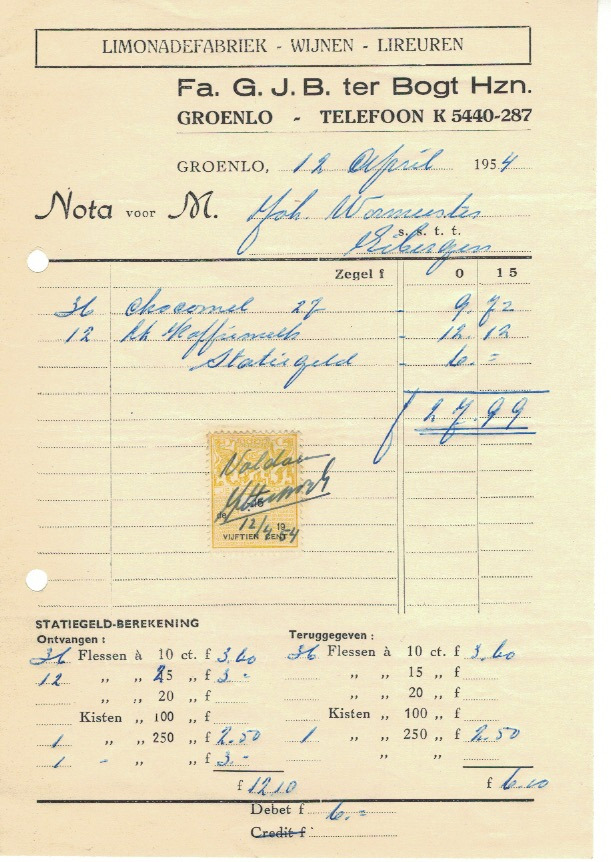 LIMONADEFABRIEK - WIJNEN - LIREUREN
Fa. G. J. B. ter Bogt Hzn.
GROENLO - TELEFOON K 5440-287
GROENLO, 12 April 1954
Nota voor M. Joh. Wormeester
s. s. t. t.
Eibergen
Zegel f 0 15
36 Chocomel 27 - 9.72
12 Koffiemelk - 12.12
Statiegeld - 6.=
f 27.99
Voldaan
12/4 1954
VIJFTIEN CENT
STATIEGELD-BEREKENING
Ontvangen : Teruggegeven :
36 Flessen à 10 ct. f 3.60 36 Flessen à 10 ct. f 3.60
12 „ „ 25 „ f 3.- „ „ 15 „ f
„ „ 20 „ f „ „ 20 „ f
Kisten „ 100 „ f Kisten „ 100 „ f
1 „ „ 250 „ f 2.50 1 „ „ 250 „ f 2.50
1 - „ „ f 3.- „ „
f 12.10 f 6.10
Debet f 6.=
Credit f